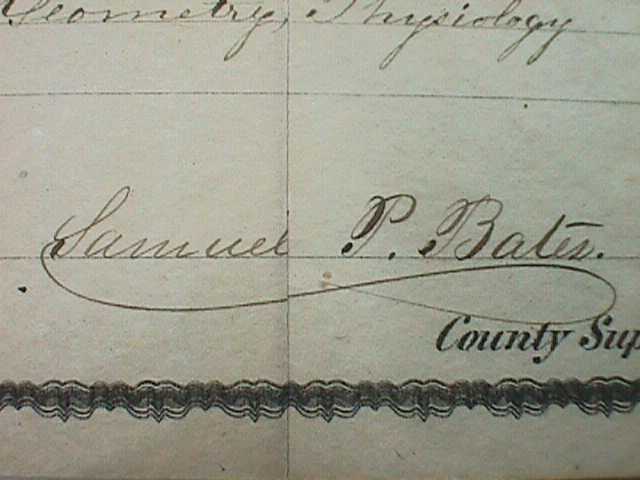 Geometry, Physiology
Samuel P. Bates.
County Sup